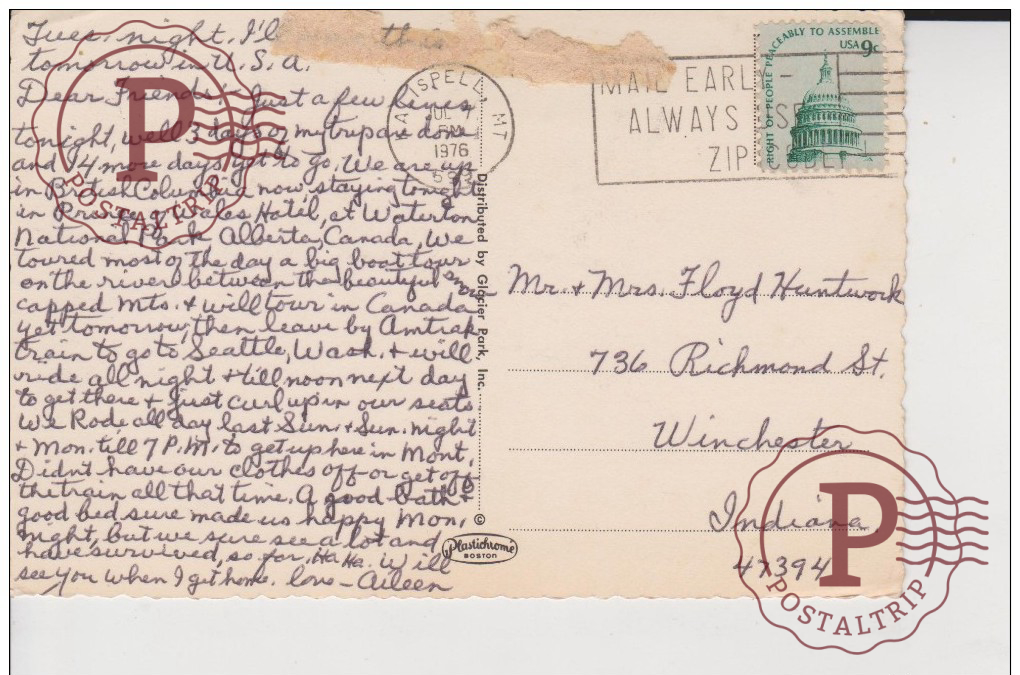 Tues. night. I'll this
tomorrow in U. S. A.
Dear Friends:- Just a few lines
tonight, well 3 days of my trip are done
and 14 more days yet to go. We are up
in British Columbia now staying tonight
in Prince of Wales Hotel, at Waterton
National Park Alberta, Canada, We
toured most of the day a big boat tour
on the river between the beautiful snow
capped Mts. + will tour in Canada
yet tomorrow, then leave by Amtrak
train to go to Seattle, Wash. + will
ride all night + till noon next day
to get there + just curl up in our seats.
We Rode all day last Sun. + Sun. night
+ Mon. till 7 P.M. to get up here in Mont.
Didnt have our clothes off or get off
the train all that time. A good bath +
good bed sure made us happy Mon.
night, but we sure see a lot and
have survived, so far, Ha Ha. Will
see you when I get home. love - Aileen
KALISPELL, MT
JUL 7
PM
1976
MAIL EARLY-
ALWAYS USE
ZIP CODE!
RIGHT OF PEOPLE PEACEABLY TO ASSEMBLE
USA 9c
Distributed by Glacier Park, Inc.
©
Plastichrome
BOSTON
Mr. + Mrs. Floyd Huntwork
736 Richmond St.
Winchester
Indiana
47394
P
POSTALTRIP
P
POSTALTRIP